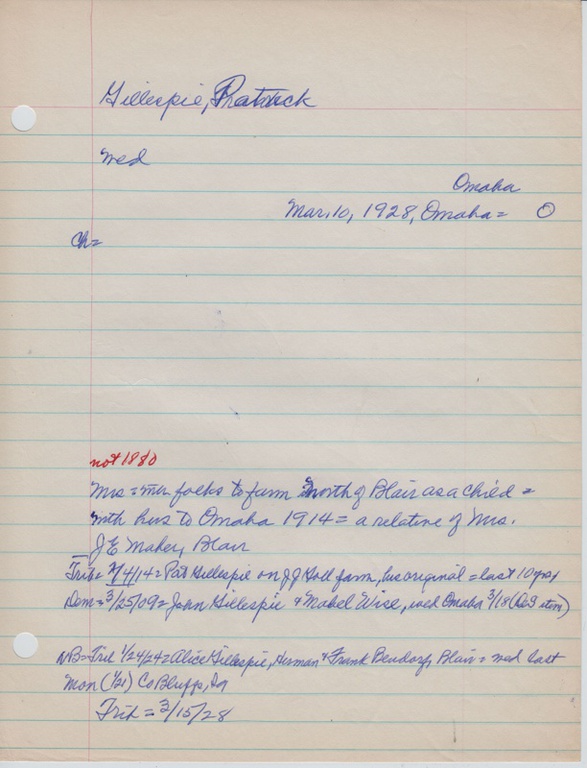 Gillespie, Patrick
wed
Omaha
Mar. 10, 1928, Omaha = O
Ch=
not 1880
Mrs = folks to farm North of Blair as a child =
with hus to Omaha 1914 = a relative of Mrs.
J E Maher, Blair
Trib = 4/14 = Pat Gillespie on J J farm, = last 10 yrs
Dem = 3/25/09 = John Gillespie & Mabel Wise, wed Omaha 3/18
NB = Trib 1/24/24 = Alice Gillespie, Herman & Frank Bendorf, Blair = wed last
Mon (1/21) Co Bluffs, Ia
Trib = 3/15/28